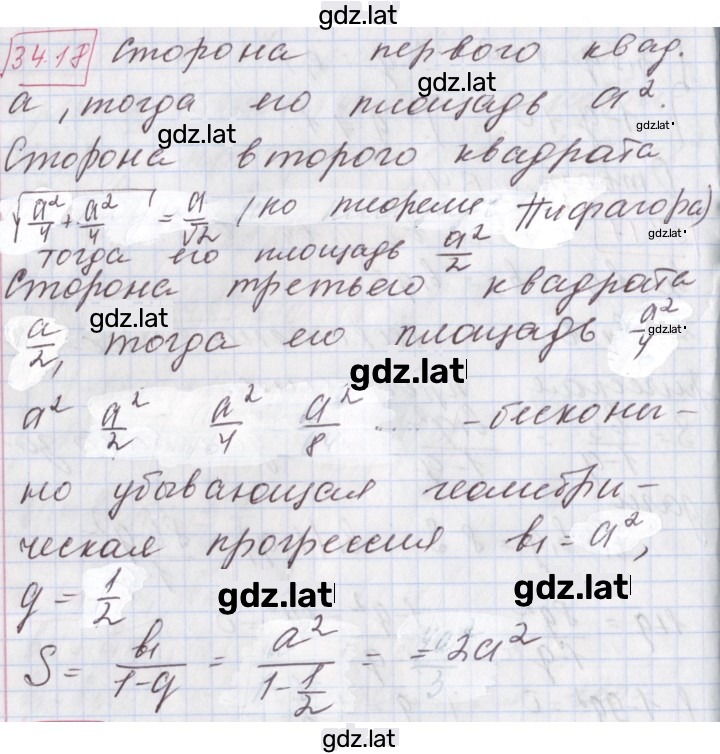 gdz.lat
34.18 Сторона первого квад.
gdz.lat
а, тогда его площадь a².
gdz.lat
gdz.lat
Сторона второго квадрата
√(a²/4 + a²/4) = a/√2 (по теореме Пифагора)
gdz.lat
тогда его площадь a²/2
Сторона третьего квадрата
gdz.lat
a/2, тогда его площадь a²/4
gdz.lat
gdz.lat
a² a²/2 a²/4 a²/8 .... - бесконеч-
но убывающая геометри-
ческая прогрессия b₁ = a²,
q = 1/2
gdz.lat
gdz.lat
S = b₁/(1-q) = a²/(1-1/2) = = 2a²
gdz.lat